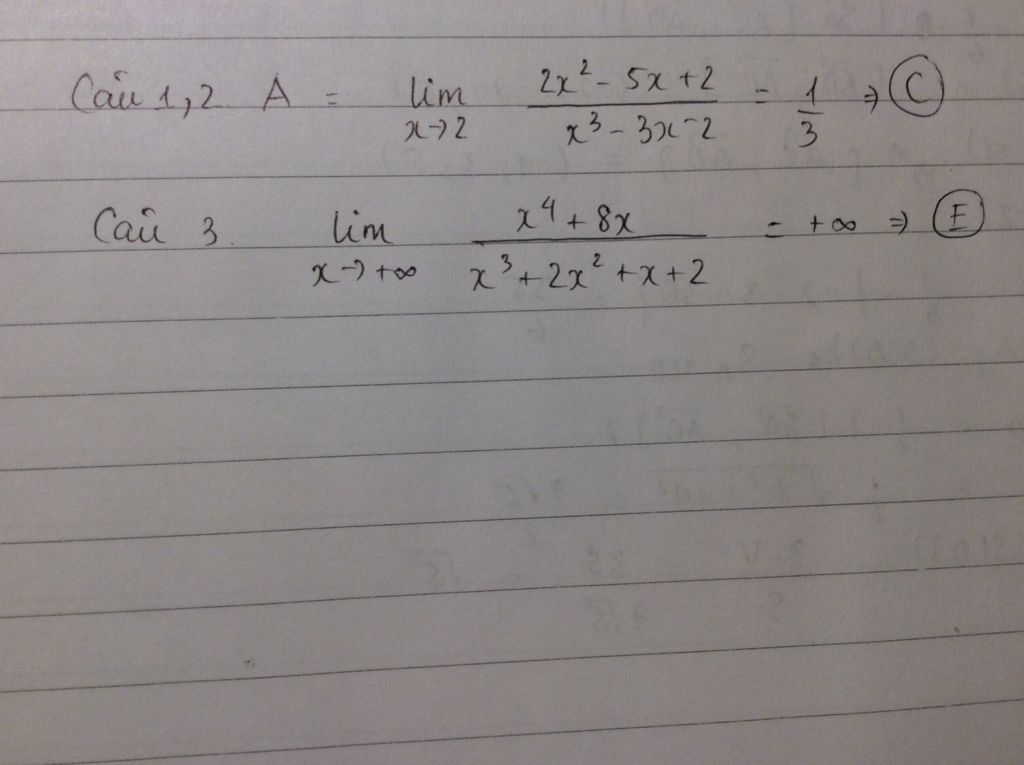 Câu 1,2. A = lim x→2 (2x² - 5x + 2)/(x³ - 3x - 2) = 1/3 ⇒ C
Câu 3. lim x→+∞ (x⁴ + 8x)/(x³ + 2x² + x + 2) = +∞ ⇒ E